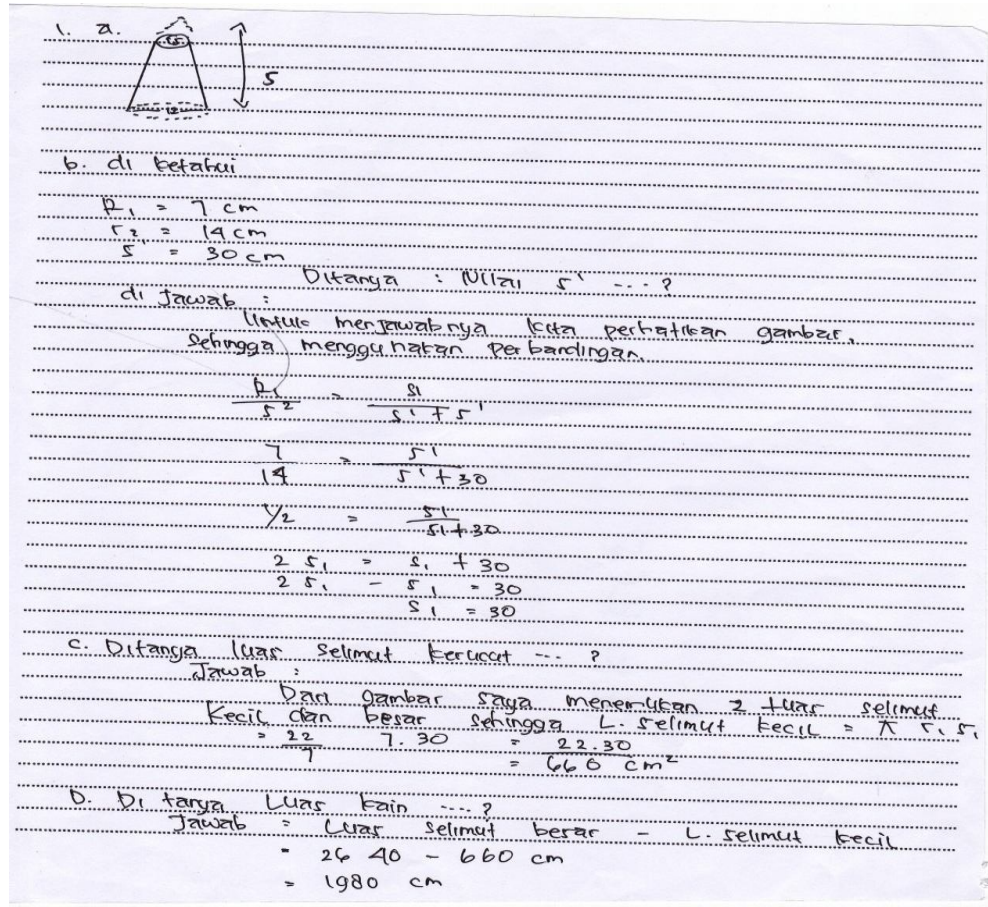 1. a.
5
12
b. di ketahui
R₁ = 7 cm
r₂ = 14 cm
S = 30 cm
Ditanya : Nilai s' --- ?
di Jawab :
Untuk menjawabnya kita perhatikan gambar,
Sehingga menggunakan perbandingan.
R₁ / s² = s1 / s' + s'
7 / 14 = s' / s' + 30
1/2 = s1 / s1 + 30
2 s₁ = s₁ + 30
2 s₁ - s₁ = 30
s1 = 30
c. Ditanya luas Selimut kerucut --- ?
Jawab :
Dari gambar saya menemukan 2 luas selimut
Kecil dan besar sehingga L. selimut kecil = π r₁ s₁
= 22/7 7.30 = 22.30
= 660 cm²
D. Di tanya Luas kain ---- ?
Jawab = Luas selimut besar - L. selimut kecil
= 26 40 - 660 cm
= 1980 cm